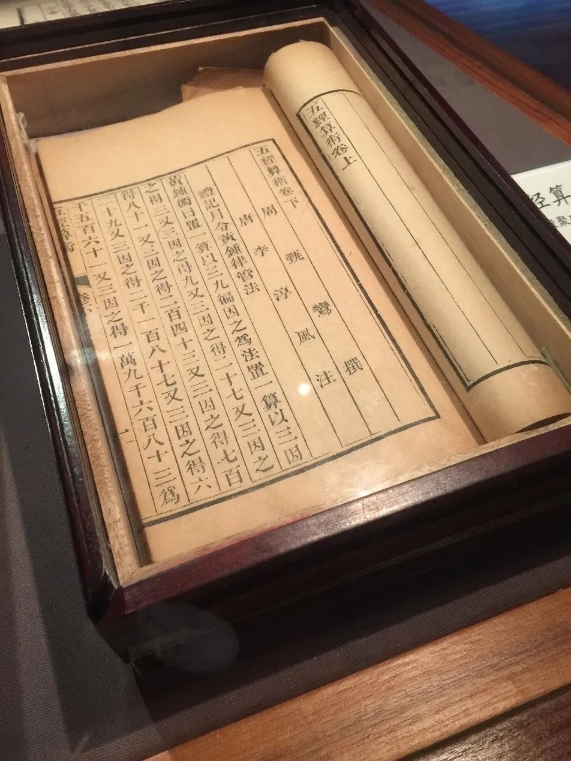 五經算術卷上
五經算術卷下
周 甄 鸞 撰
唐 李 淳 風 注
禮記月令黃鍾律管法
黃鍾術曰置一算以三九徧因之爲法置一算以三因
之得三又三因之得九又三因之得二十七又三因之
得八十一又三因之得二百四十三又三因之得七百
二十九又三因之得二千一百八十七又三因之得六
千五百六十一又三因之得一萬九千六百八十三爲
五經算術
经算